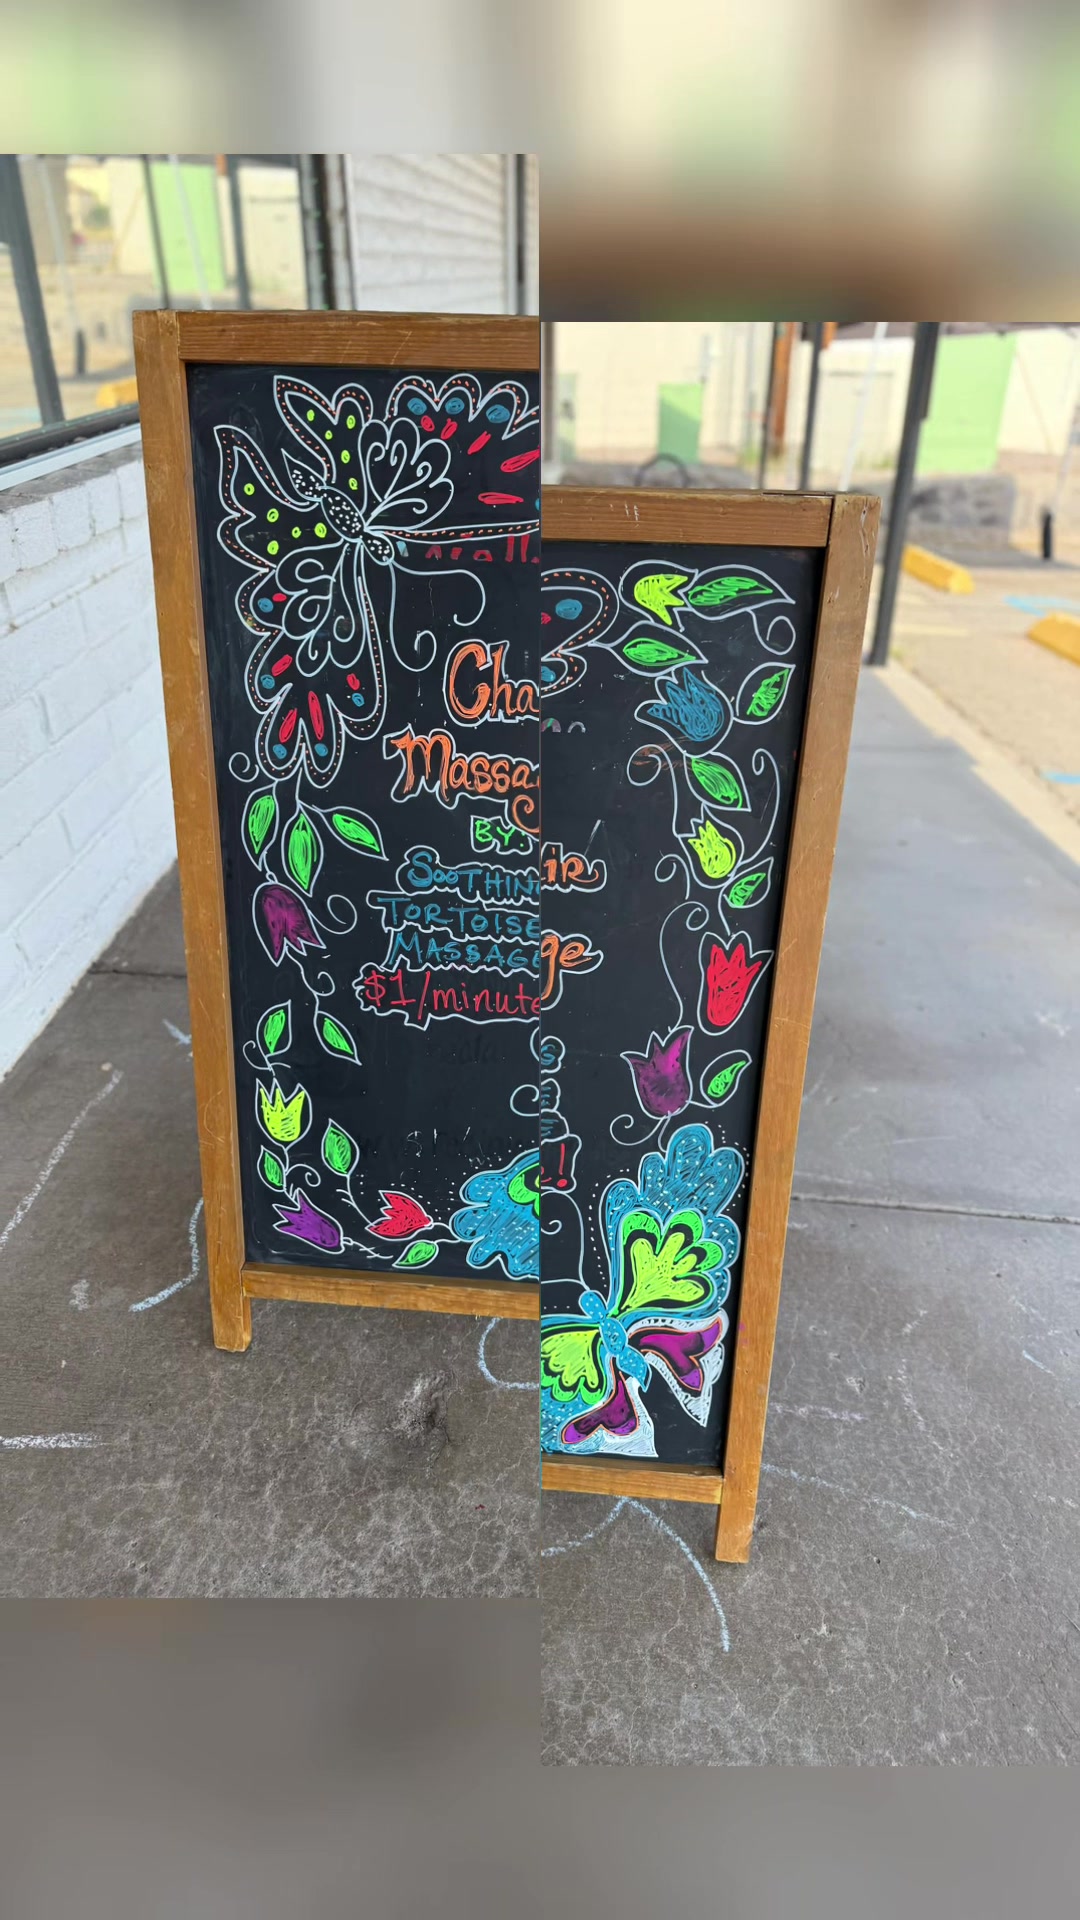 Chair
Massage
BY:
SOOTHING
TORTOISE
MASSAGE
$1/minute!